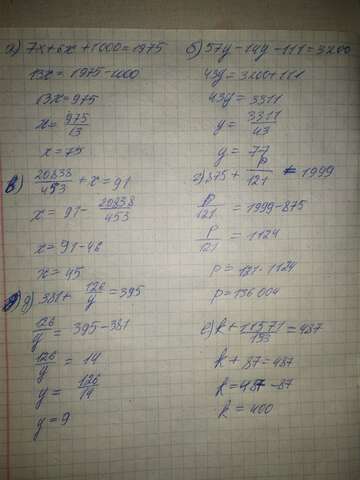 а) 7x+6x+1000=1975
13x = 1975-1000
13x = 975
x = 975/13
x = 75
б) 57y-14y-111=3200
43y = 3200+111
43y = 3311
y = 3311/43
y = 77
в) 20838/453 + x = 91
x = 91 - 20838/453
x = 91-46
x = 45
г) 875 + p/121 = 1999
p/121 = 1999-875
p/121 = 1124
p = 121·1124
p = 136004
д) 381 + 126/y = 395
126/y = 395-381
126/y = 14
y = 126/14
y = 9
е) k + 11571/133 = 487
k + 87 = 487
k = 487-87
k = 400